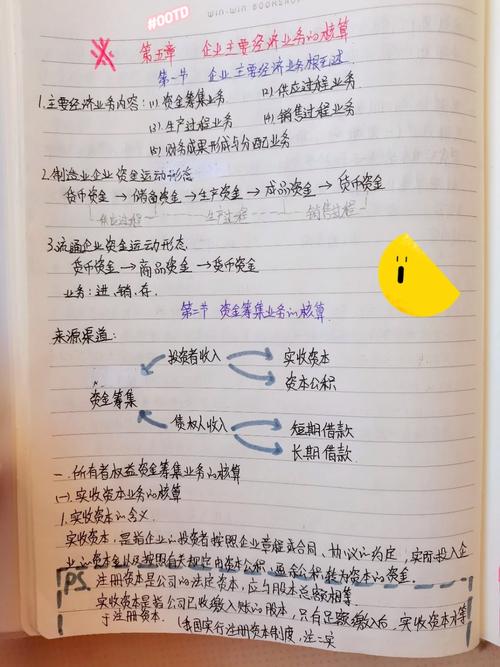 #OOTD
WIN-WIN BOOKSHOP
※ 第五章 企业主要经济业务的核算
第一节 企业主要经济业务概述
1.主要经济业务内容:(1)资金筹集业务 (2)供应过程业务
(3)生产过程业务 (4)销售过程业务
(5)财务成果形成与分配业务
2.制造业企业资金运动形态
货币资金→储备资金→生产资金→成品资金→货币资金
供应过程 生产过程 销售过程
3.流通企业资金运动形态
货币资金→商品资金→货币资金
业务:进、销、存.
第二节 资金筹集业务的核算
来源渠道:
投资者收入 实收资本
资本公积
资金筹集
债权人收入 短期借款
长期借款
一.所有者权益资金筹集业务的核算
(一).实收资本业务的核算
1.实收资本的含义
实收资本,是指企业的投资者按照企业章程或合同、协议的约定,实际投入企
业的资本金以及按照有关规定由资本公积、盈余公积转为资本的资金.
PS. 注册资本是公司的法定资本,应与股本总额相等.
实收资本是指公司已收缴入账的股本,只有足额缴入后,实收资本才等
于注册资本.(我国实行注册资本制度,注=实